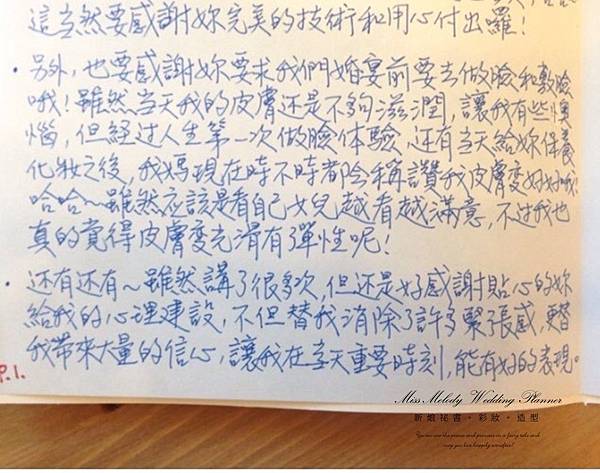 這当然要感謝妳完美的技術和用心付出囉!
• 另外,也要感謝妳要求我們婚宴前要去做臉和敷臉
哦!雖然当天我的皮膚还是不夠滋潤,讓我有些懊
惱,但經过人生第一次做臉体驗,还有当天給妳保養
化妝之後,我媽現在時不時都会稱讚我皮膚変好好哦!
哈哈~雖然应該是看自己女兒越看越滿意,不过我也
真的覺得皮膚変光滑有彈性呢!
• 还有还有~雖然講了很多次,但还是好感謝貼心的妳
給我的心理建設,不但替我消除了許多緊張感,更替
我帶來大量的信心,讓我在当天重要時刻,能有好的表現。
P.1.
Miss Melody Wedding Planner
新娘祕書·彩妝·造型